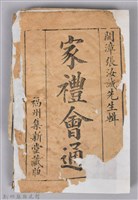 閩漳張汝誠先生輯
家禮會通
福州集新堂藏版